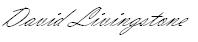 David Livingstone